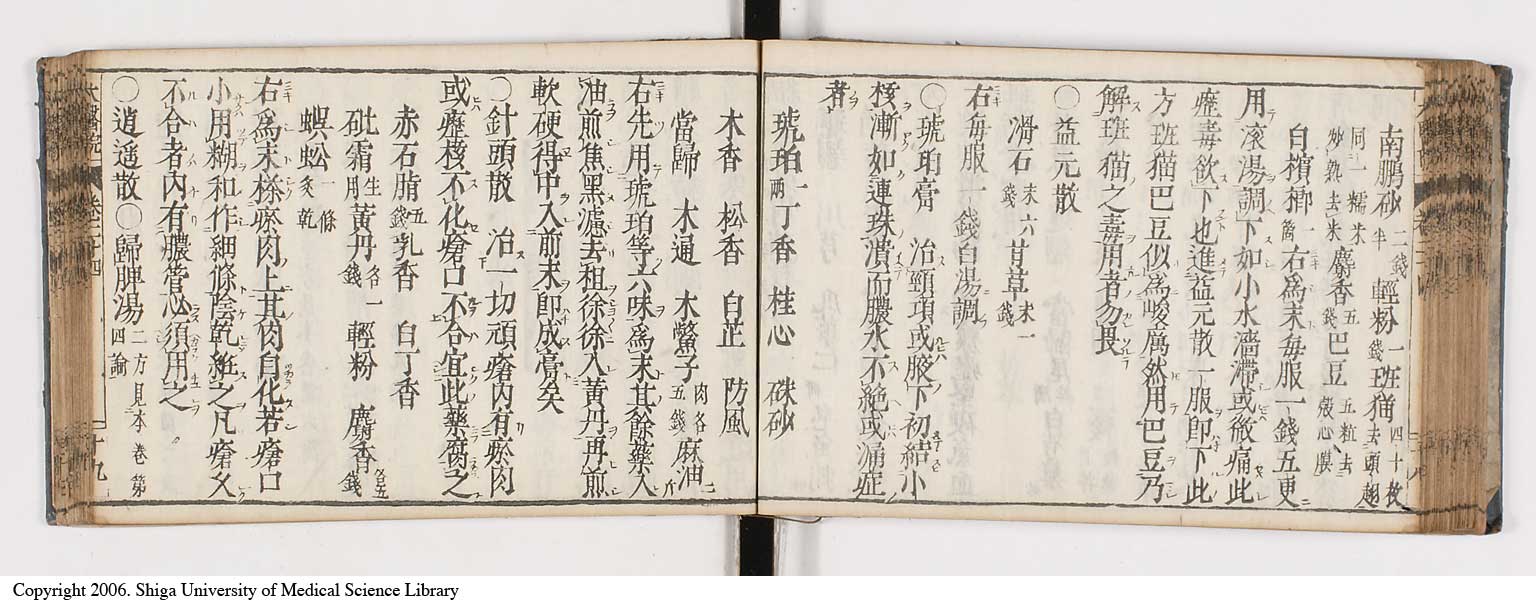 南鵬砂二錢半 輕粉一錢 班猫四十枚去頭翅
同一糯米炒熟去米 麝香五錢 巴豆五粒去殼心膜
白檳榔一箇 右為末毎服一錢五更
用滚湯調下如小水濇滯或微痛此
瘂毒欲下也進益元散一服即下此
方班猫巴豆似為峻厲然用巴豆乃
解班猫之毒用者勿畏
〇益元散
滑石末六錢 甘草末一錢
右毎服一錢白湯調
〇琥珀膏 治頸項或腋下初結小
核漸如連珠潰而膿水不絶或漏症
者
琥珀一兩 丁香 桂心 硃砂
木香 松香 白芷 防風
當歸 木通 木鱉子肉各五錢 麻油二斤
右先用琥珀等六味為末其餘藥入
油煎焦黑濾去租徐徐入黃丹再煎
軟硬得中入前末即成膏矣
〇針頭散 治一切頑瘡内有瘀肉
或瘂核不化瘡口不合宜此藥腐之
赤石脂五錢 乳香 白丁香
砒霜生用 黃丹各一錢 輕粉 麝香各五錢
蜈蚣一條炙乾
右為末搽瘀肉上其肉自化若瘡口
小用糊和作細條陰乾紙之凡瘡久
不合者内有膿管必須用之
〇逍遥散〇歸脾湯二方見本卷第四論
卷二十四
十九
Copyright 2006. Shiga University of Medical Science Library